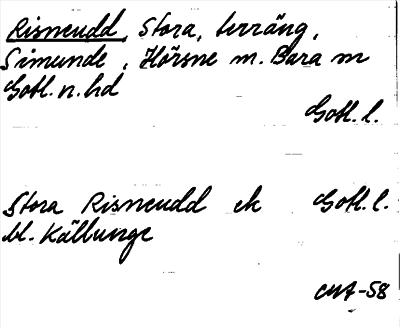 Risneudd, Stora, terräng,
Simunde, Hörsne m. Bara sn
Gotl. n. hd
Gotl. l.
Stora Risneudd ek Gotl. l.
bl. Källunge
CMA-58